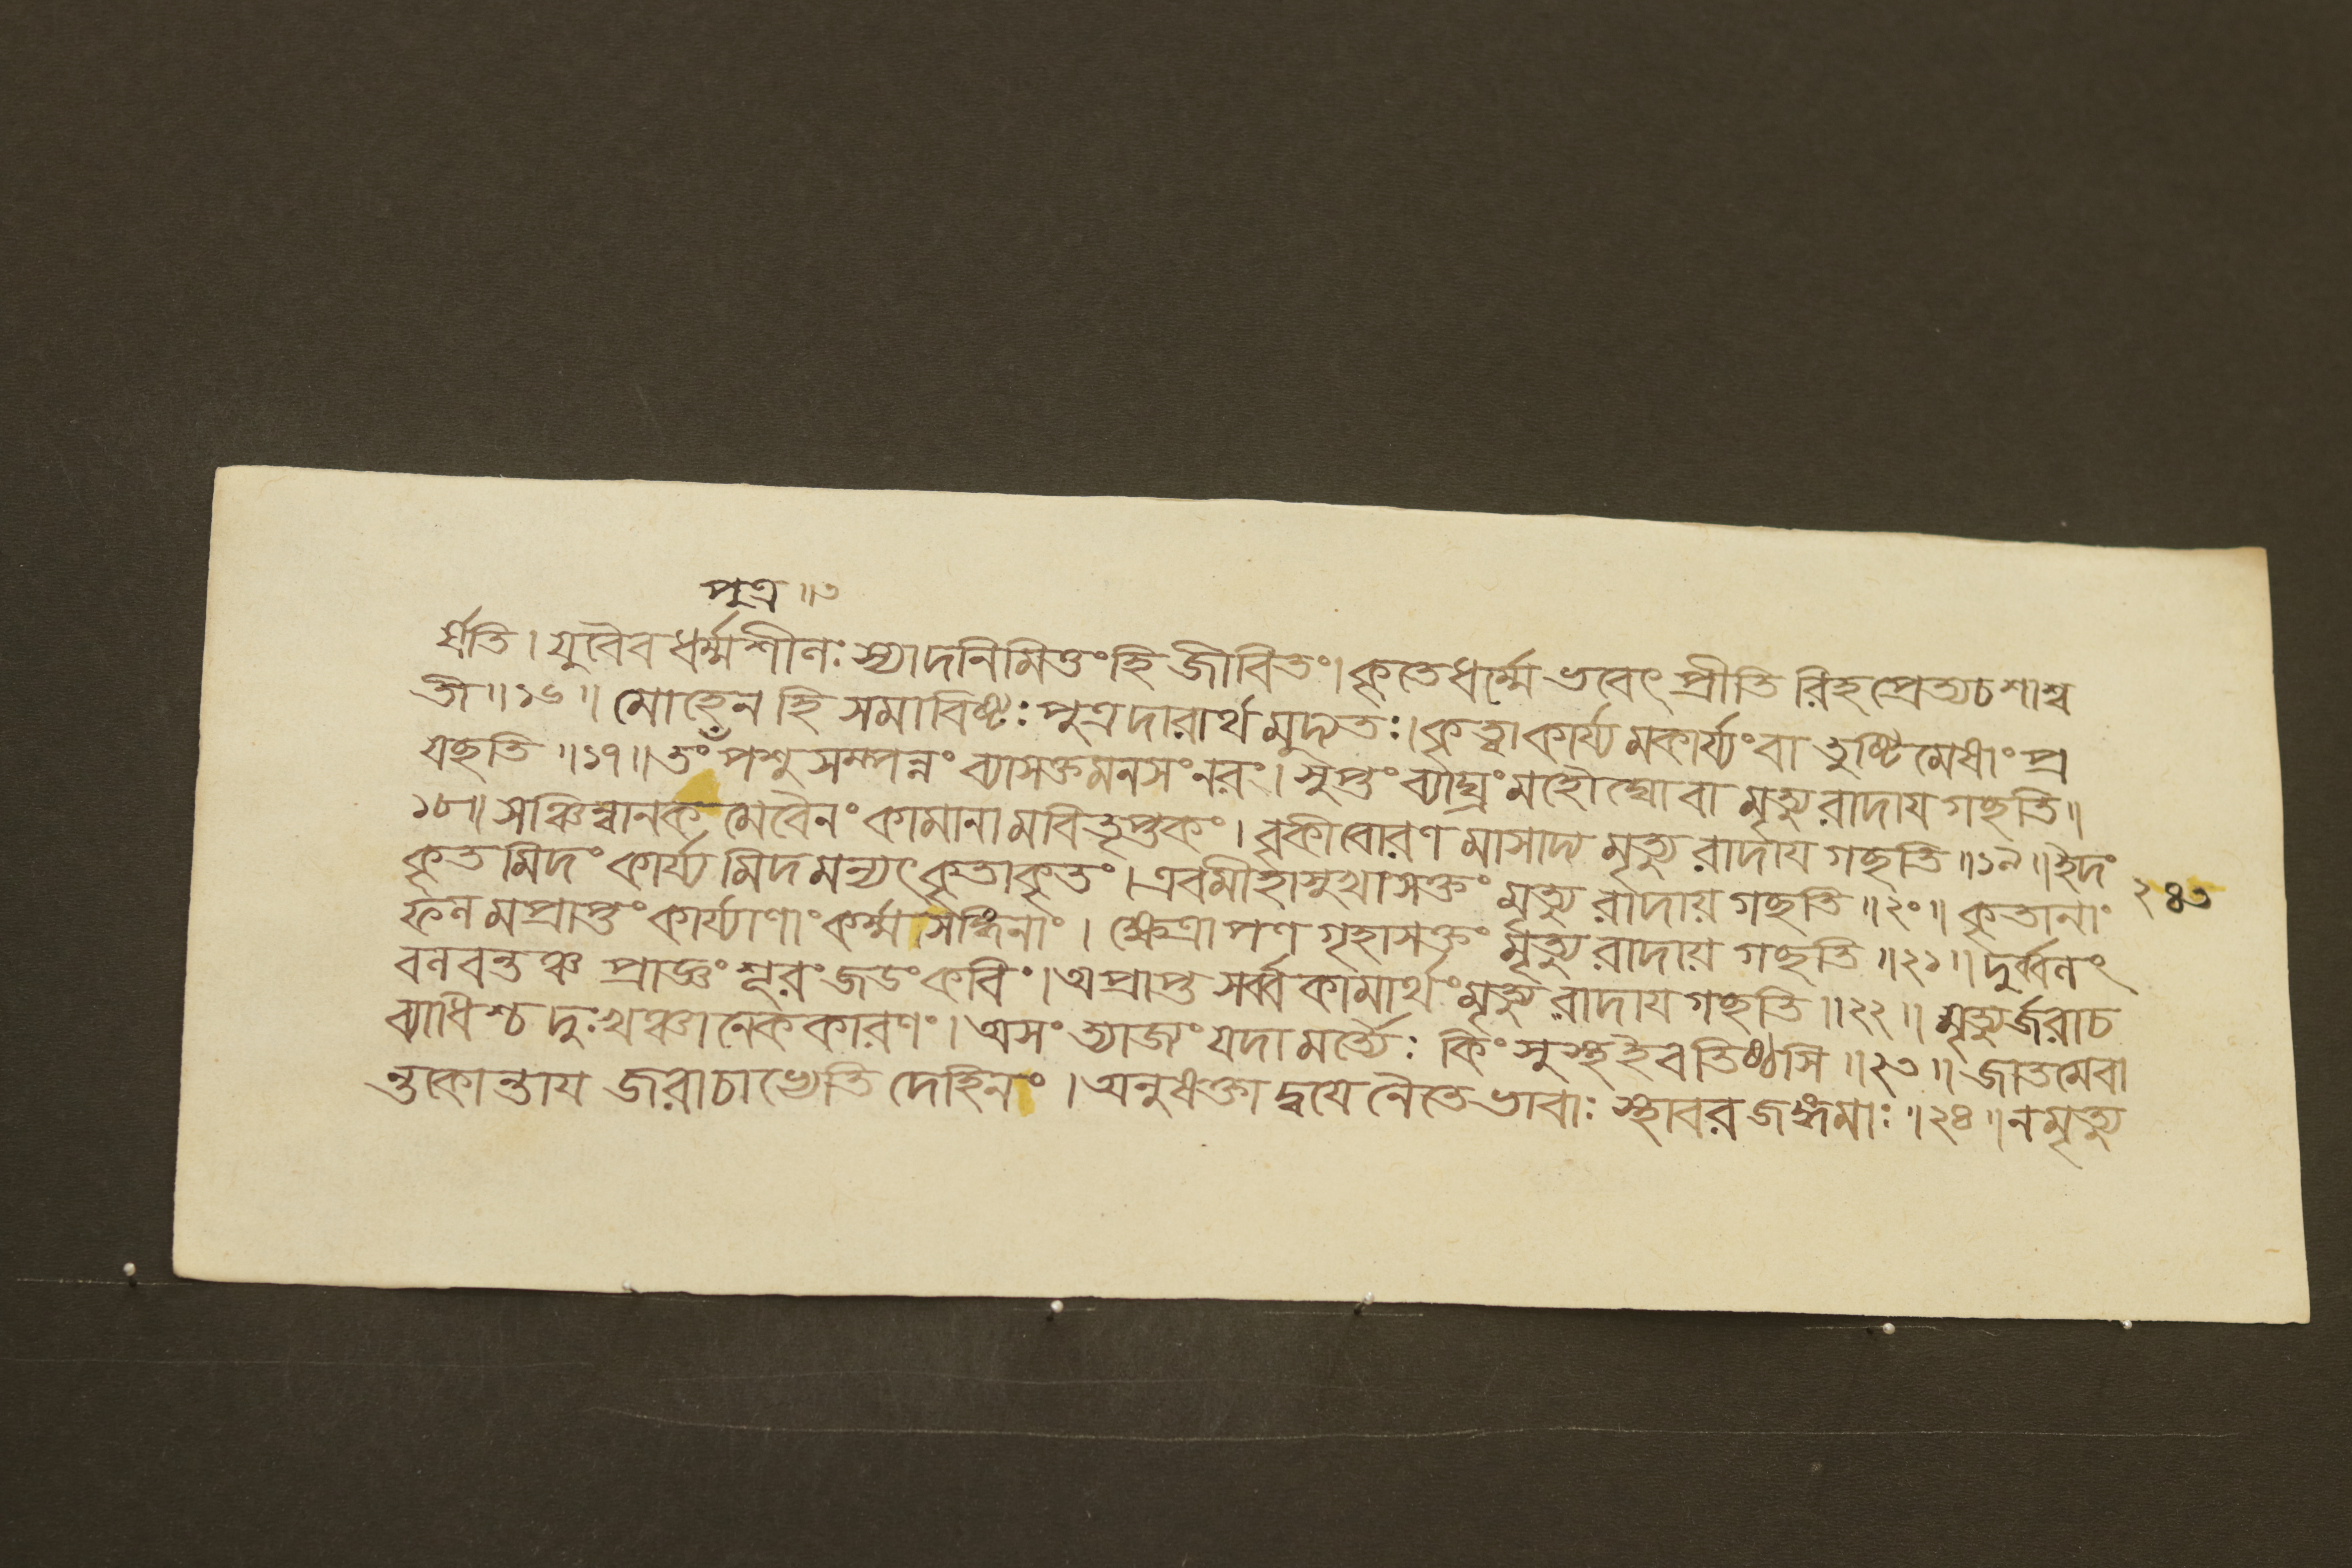 পুত্র ॥৩
র্য্যতি । যুবৈব ধর্ম্মশীলঃ স্যাদনিমিত্তং হি জীবিতং । কৃতে ধর্ম্মে ভবেৎ প্রীতি রিহ প্রেত্য চ শাশ্ব
তী ॥১৬॥ মোহেন হি সমাবিষ্টঃ পুত্রদারার্থ মুদ্যতঃ । কৃত্বা কার্য্য মকার্য্যং বা তুষ্টি মেধাং প্র
যছতি ॥১৭॥ তং পশু সম্পন্নং ব্যাসক্তমনসং নরং । সুপ্তং ব্যাঘ্রং মহৌঘো বা মৃত্যু রাদায গছতি ॥
১৮॥ সঞ্চিন্বানক মেবৈনং কামানা মবিতৃপ্তকং । বৃকীবোরণ মাসাদ্য মৃত্যু রাদায গছতি ॥১৯॥ ইদং
কৃত মিদং কার্য্য মিদ মন্যৎ কৃতাকৃতং । এবমীহাসুখাসক্তং মৃত্যু রাদায় গছতি ॥২০॥ কৃতানাং
ফল মপ্রাপ্তং কার্য্যাণাং কর্ম্ম সঙ্গিনাং । ক্ষেত্রাপণ গৃহাসক্তং মৃত্যু রাদায় গছতি ॥২১॥ দুর্ব্বলং
বলবন্তঞ্চ প্রাজ্ঞং শূরং জডং কবিং । অপ্রাপ্ত সর্ব্ব কামার্থং মৃত্যু রাদায গছতি ॥২২॥ মৃত্যুর্জরা চ
ব্যাধিশ্চ দুঃখঞ্চানেক কারণং । অসংত্যাজ্যং যদা মর্ত্যৈঃ কিং সুস্থ ইব তিষ্ঠসি ॥২৩॥ জাতমেবা
ন্তকান্তায জরা চাভ্যেতি দেহিনং । অনুষক্তা দ্বযে নৈতে ভাবাঃ স্থাবর জঙ্গমাঃ ॥২৪॥ ন মৃত্যু
২৪৩